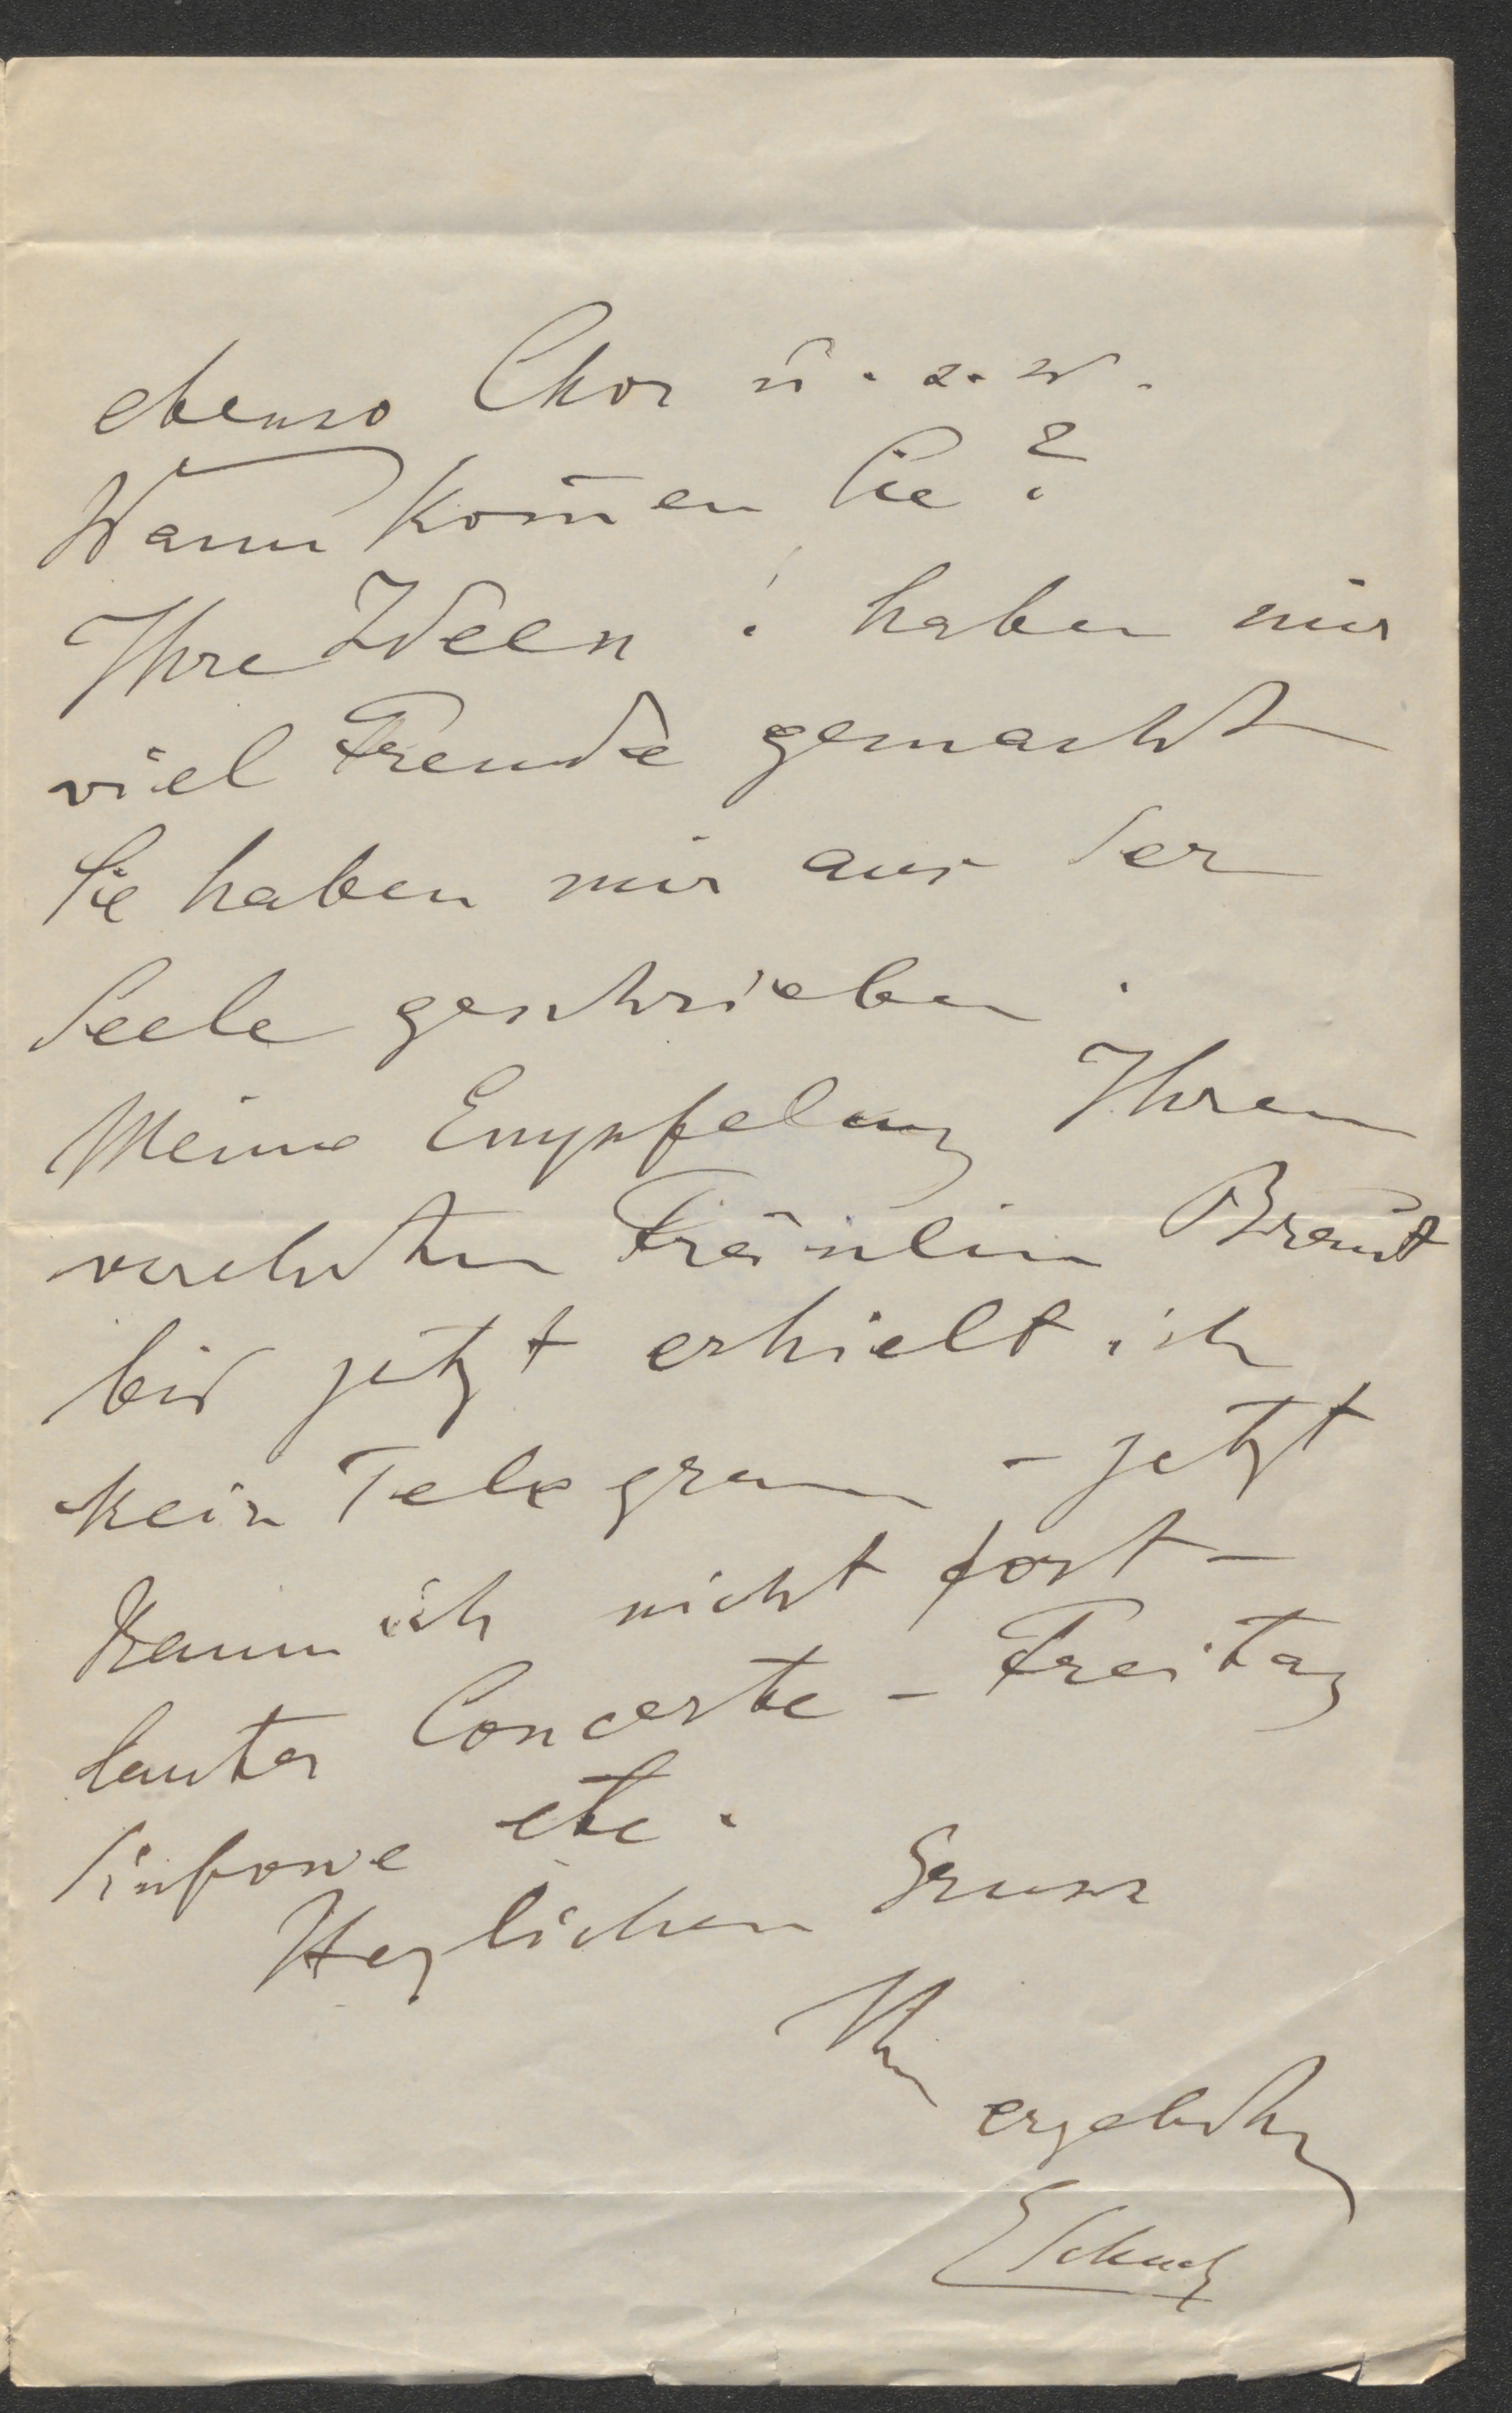 ebenso Chor u. s. w.
Wann kom̄en Sie?
Ihre Ideen! haben mir
viel Freude gemacht
Sie haben mir aus der
Seele geschrieben.
Meine Empfelung Ihrem
verehrten Fräulein Braut
bis jetzt erhielt ich
kein Telegram – jetzt
kann ich nicht fort –
lauter Concerte – Freitag
Sinfonie etc.
Herzlichen Gruss
Ihr
ergebenster
ESchuch